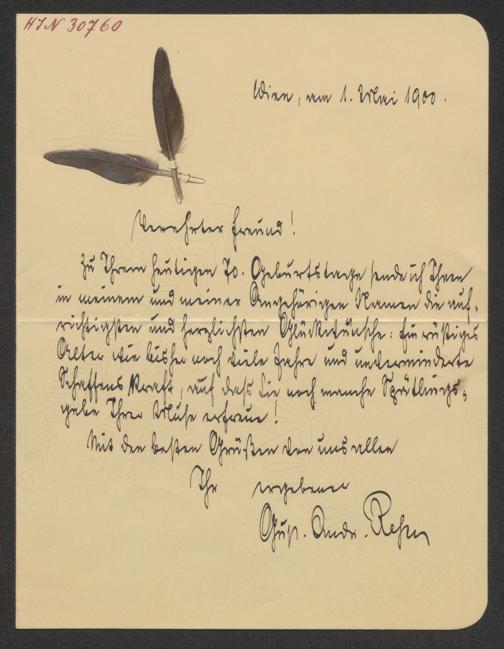 HIN 30760
Wien, am 1. Mai 1900.
Verehrter Freund!
Zu Ihrem heutigen 70. Geburtstage sende ich Ihnen
in meinem und meiner Angehörigen Namen die auf-
richtigsten und herzlichsten Glückwünsche: Ein rüstiges
Alter wie bisher noch viele Jahre und unverminderte
Schaffenskraft, auf daß Sie noch manche Spätlings-
gabe Ihrer Muse erfreue!
Mit den besten Grüßen von uns allen
Ihr ergebener
Gust. Andr.